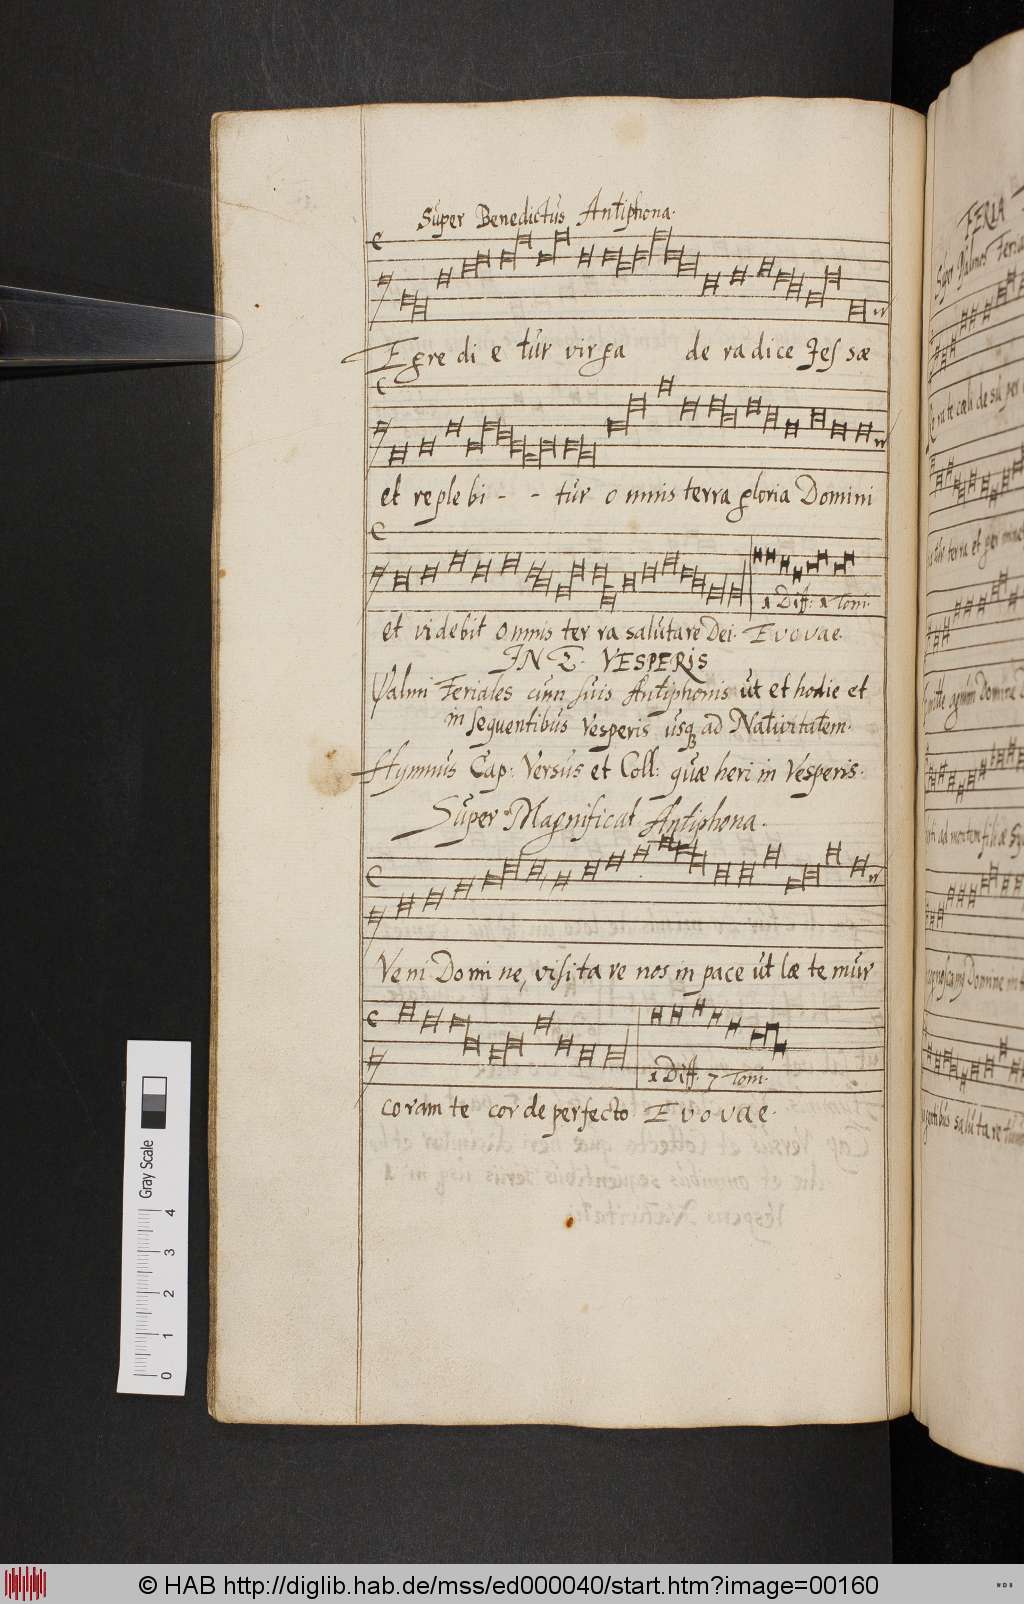 Super Benedictus Antiphona.
Egre di e tur virga de radice Jes sæ
et reple bi - - tur o mnis terra gloria Domini
1 Diff: 1 Toni.
et videbit omnis ter ra salutare Dei. Evovae.
IN 2. VESPERIS
Psalmi Feriales cum suis Antiphonis ut et hodie et
in sequentibus Vesperis usq ad Nativitatem.
Hymnus Cap: Versus et Coll: quæ heri in Vesperis.
Super Magnificat Antiphona.
Veni Domi ne, visita re nos in pace ut læ te mur
1 Diff. 7 Toni.
coram te cor de perfecto Evovae.
FERIA
Super Psalmos Feria
Ro ra te cæli de su per
tur terra et ger minet
Emitte agnum Domine
Domine
Gray Scale
0 1 2 3 4
© HAB http://diglib.hab.de/mss/ed000040/start.htm?image=00160